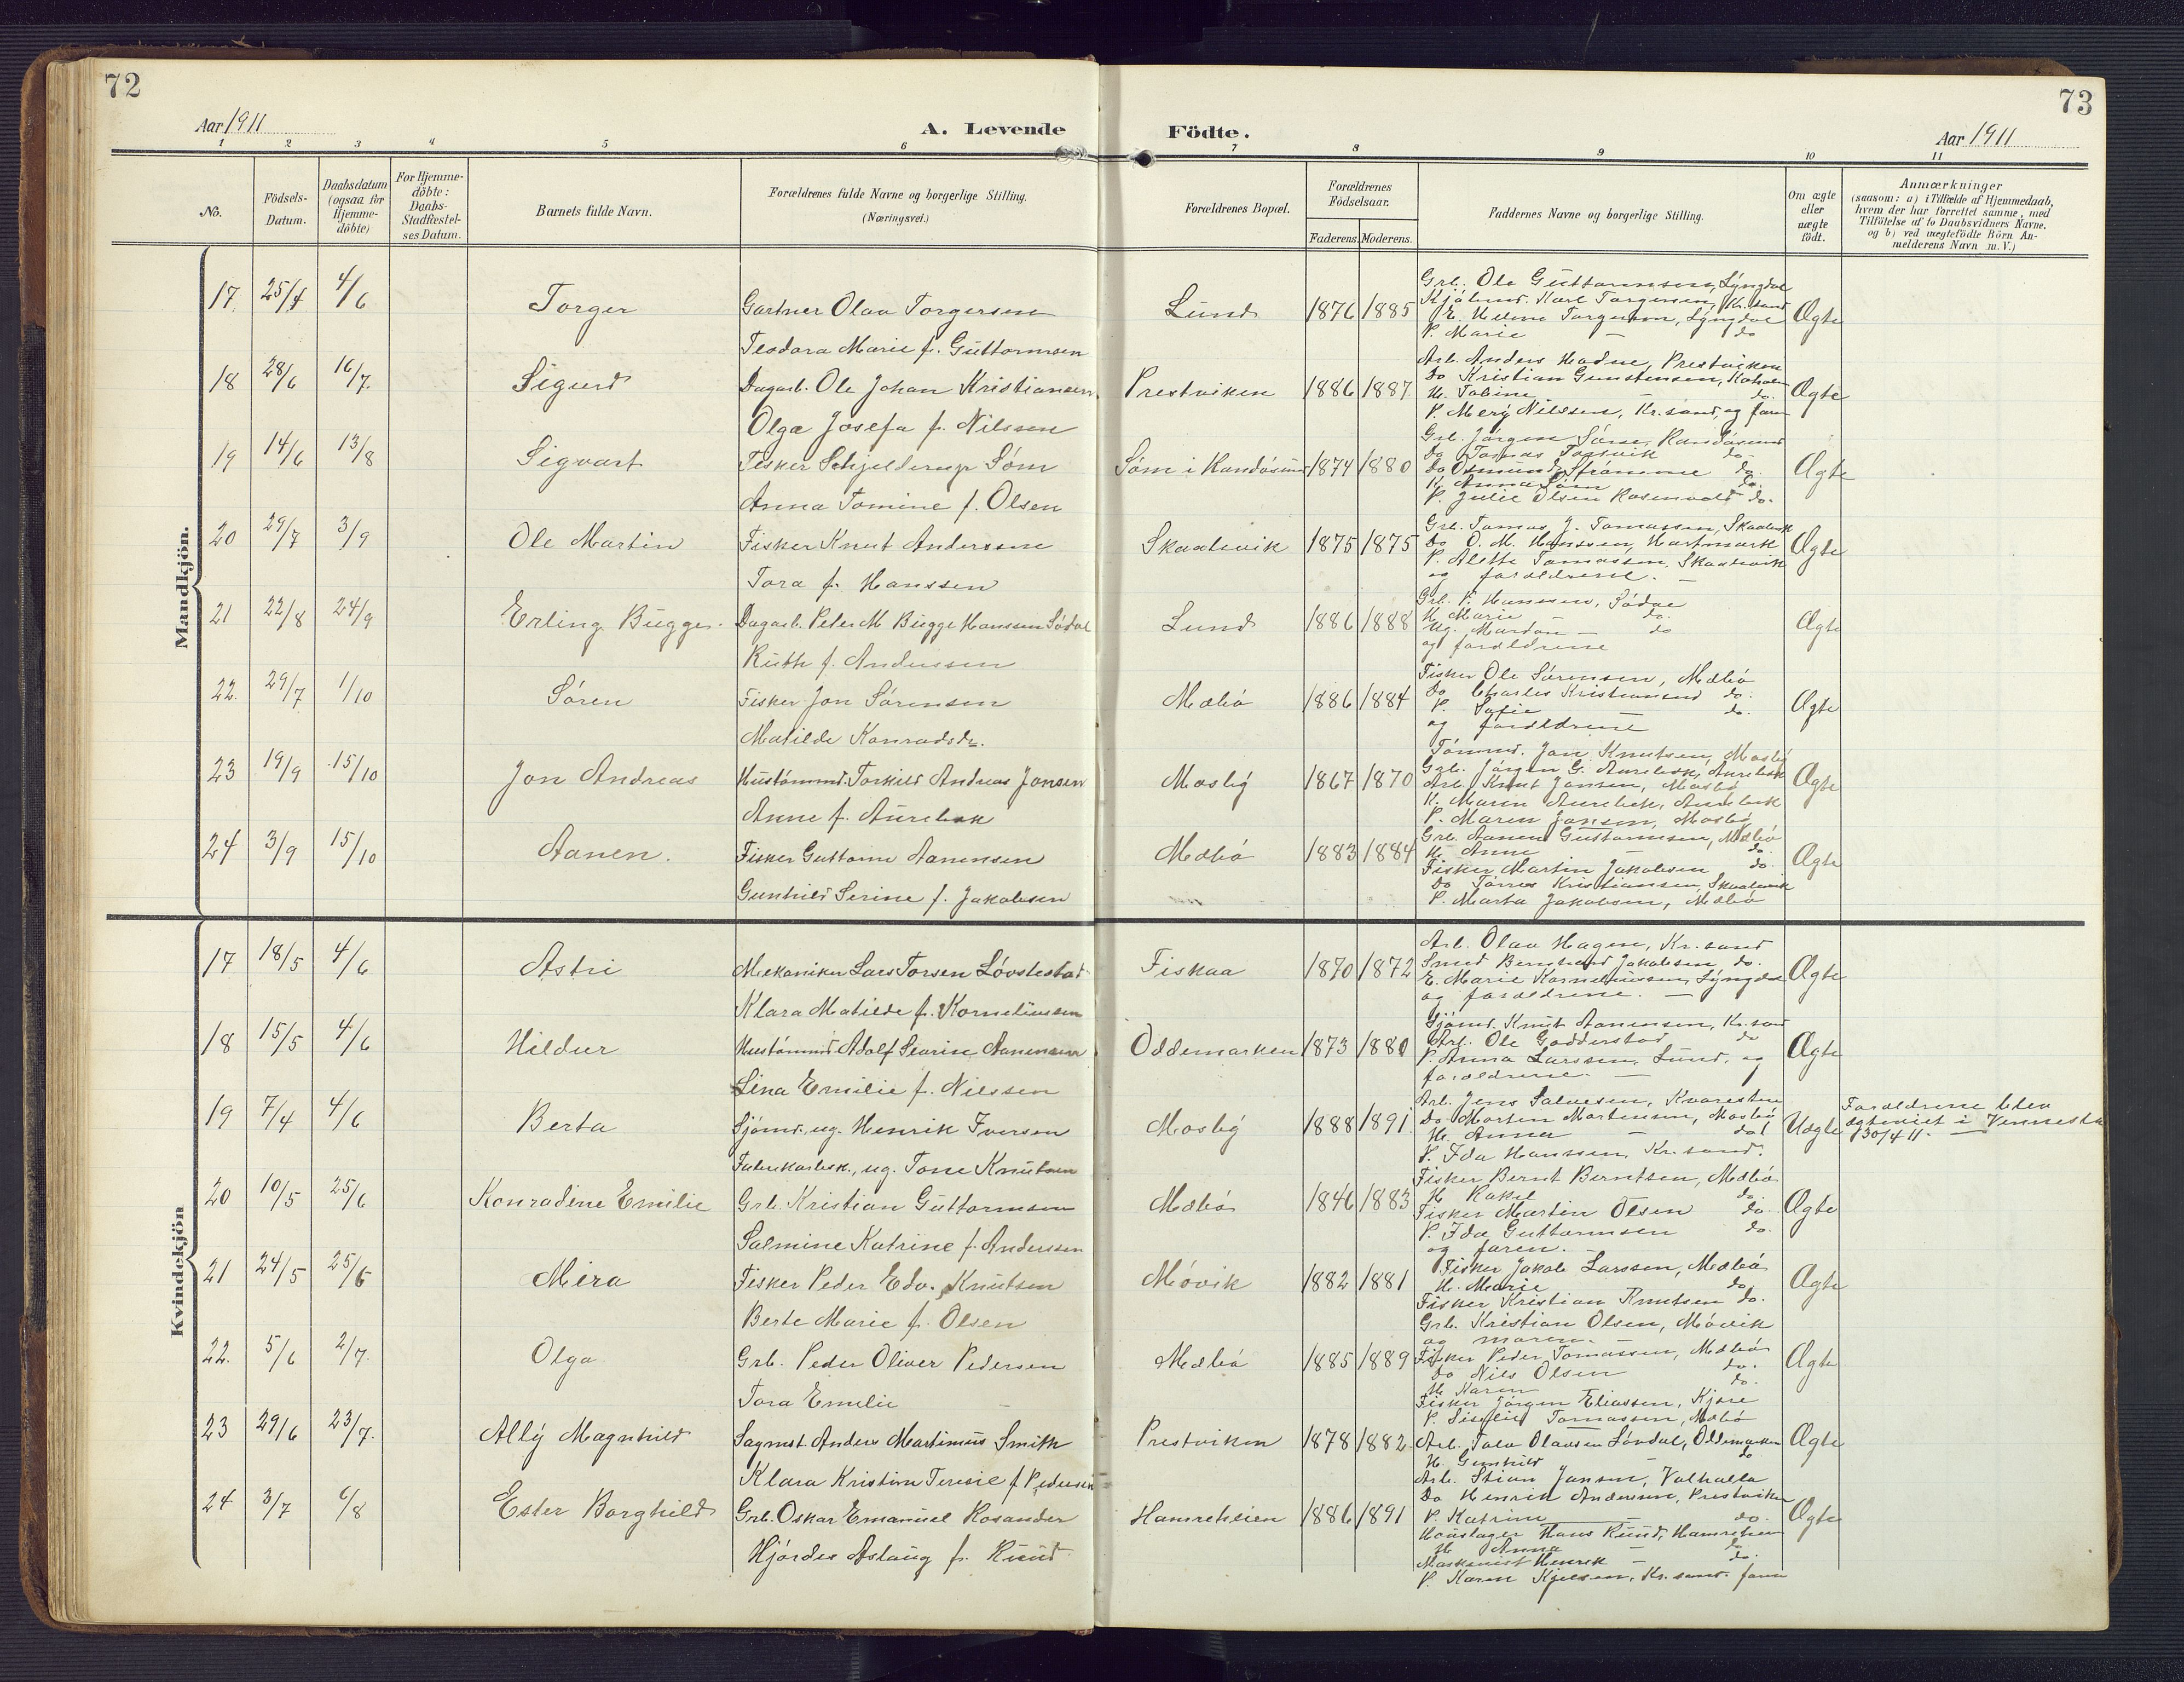 72
73
Aar 1911
A. Levende Födte.
Aar 1911
1 2 3 4 5 6 7 8 9 10 11
No.
Födsels-Datum.
Daabsdatum (ogsaa for Hjemme-döbte)
For Hjemme-döbte: Daabs-Stadfæstel-ses Datum.
Barnets fulde Navn.
Forældrenes fulde Navne og borgerlige Stilling. (Næringsvei.)
Forældrenes Bopæl.
Forældrenes Födselsaar.
Faderens. Moderens.
Faddernes Navne og borgerlige Stilling.
Om ægte eller uægte födt.
Anmærkninger
(saasom: a) i Tilfælde af Hjemmedaab,
hvem der har forrettet samme, med
Tilföielse af to Daabsvidners Navne.
og b) ved uægtefödte Börn An-
melderens Navn m.V.)
Mandkjön.
17. 25/4 4/6 Torger
Gartner Olav Torgersen
Teodora Marie f. Guttormsen
Lund 1876 1885
Grb. Ole Guttormsen, Lyngdal
Karl Torgersen, Kr.sand
Torgersen, Lyngdal
P. Marie — do
Ægte
18 28/6 16/7. Sigurd
Dagarb. Ole Johan Kristiansen
Olga Josefa f. Nilssen
Prestviken 1886 1887
Arb. Anders Hodne, Prestviken
do Kristian Gunstensen,
H. Tobine — do.
P. Mery Nilssen, Kr.sand, og faren
Ægte
19 14/6 13/8 Sigvart
Fisker Schjelderup Söm
Anna Tomine f. Olsen
Söm i Randösund 1874 1880
Grb. Jörgen Randösund
do Tomas do
do Osmund Strömme do.
H. Anna Söm do.
P. Julie Olsen Rosenvold do.
Ægte
20 29/7 3/9 Ole Martin
Fisker Knut Anderssen
Tora f. Hanssen
Skaalevik 1875 1875
Grb. Tomas J. Tomassen, Skaalevik
do O. M. Hanssen, Hartmark
P. Alette Tomassen, Skaalevik
og forældrene. —
Ægte
21 22/8 24/9 Erling Bugge.
Dagarb. Peter M Bugge Hanssen Södal
Ruth f. Andersen
Lund 1886 1888
Grb. P. Hanssen, Södal
H. Marie — do.
Ug. — do
og forældrene
Ægte
22. 29/7 1/10 Sören
Fisker Jon Sörensen
Matilde Konradsdr.
Mæbö 1886 1884
Fisker Ole Sörensen, Mæbö
do Charles Kristiansen do.
P. Sofie do.
og forældrene
Ægte
23 19/9 15/10 Jon Andreas
Hustömmd. Torkild Andreas Jonsen
Anne f. Aurebek
Mosby 1867 1870
Tömmd. Jon Knutsen, Mosby
Grb. Jörgen G. Aurebek, Aurebek
Arb. Knut Jonsen, Mosby
H. Maren Aurebek, Aurebek
P. Maren Jonsen, Mosby
Ægte
24 3/9 15/10 Aanen.
Fisker Guttorm Aanensen
Gunhild Serine f. Jakobsen
Mæbö 1883 1884
Grb. Aanen Guttormsen, Mæbö
H. Anne — do.
Fisker Martin Jakobsen do.
do Törres Kristiansen, Skaalevik
P. Marta Jakobsen, Mæbö
Ægte
Kvindekjön
17 18/5 4/6 Astri
Mekaniker Lars Torsen Lövstestad
Klara Matilde f. Korneliussen
Fiskaa 1870 1872
Arb. Olav Hagen, Kr.sand
Smed Bernhard Jakobsen do.
E. Marie Korneliussen, Lyngdal
og forældrene. —
Ægte
18 15/5 4/6 Hildur
Hustömmd. Adolf Severin Aanensen
Lina Emilie f. Nilssen
Oddemarken 1873 1880
Sjömd. Knut Aanensen, Kr.sand
Arb. Ole Godderstad do
P. Anna Larssen, Lund, og
forældrene. —
Ægte
19 7/4 4/6 Berta
Sjömd., ug. Henrik Iversen
ug. Tone Knutsen
Mosby 1888 1891.
Arb. Jens Salvesen, Kvarsten
do Morten Mortensen, Mosby
H. Anna — do
P. Ida Hanssen, Kr.sand.
Uægte
Forældrene blev
ægteviet i Vennesla
30/4 11. —
20 10/5 25/6 Konradine Emilie
Grb. Kristian Guttormsen
Salmine Katrine f. Anderssen
Mæbö 1846 1883
Fisker Bernt Berntsen, Mæbö
H. Rakel do.
Fisker Martin Olsen do.
P. Ida Guttormsen do.
og faren. —
Ægte
21 24/5 25/6 Mira
Fisker Peder Edv. Knutsen
Berte Marie f. Olsen
Mövik 1882 1881
Fisker Jakob Larssen, Mæbö
H. Marie do.
Fisker Kristian Knutsen do.
Grb. Kristian Olsen, Mövik
og moren. —
Ægte
22. 5/6 2/7. Olga
Grb. Peder Oliver Pedersen
Tora Emilie —
Mæbö 1885 1889
Fisker Peder Tomassen, Mæbö
do Nils Olsen do.
H. Karen do.
Fisker Jörgen Eliassen, Kjære
P. Tomassen, Mæbö
Ægte
23 29/6 23/7. Ally Magnhild
Sagmst. Anders Martinius Smith
Klara Kristine Teresie f. Pedersen
Prestviken 1878 1882.
Arb. Tolv Olavsen Lövdal, Oddemarken
H. Gunhild — do
Arb. Stian Jansen, Valhalla
do Henrik Andersen, Prestviken
P. Katrine — do.
Ægte
24 3/7 6/8 Ester Borghild
Grb. Oskar Emanuel Rosander
Hjördis Aslaug f. Ruud
Hamreheien 1886 1891
Hans Ruud, Hamreheien
H. Anna — do.
Maskinist Henrik — do.
P. Karen Kr.sand. faren
Ægte